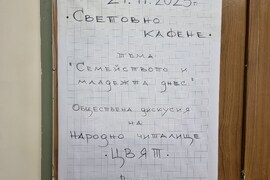 21.11.2025г.
·Световно
кафене·
тема:
"Семейството и
младежта днес"
Обществена дискусия
на
Народно читалище
·ЦВЯТ·